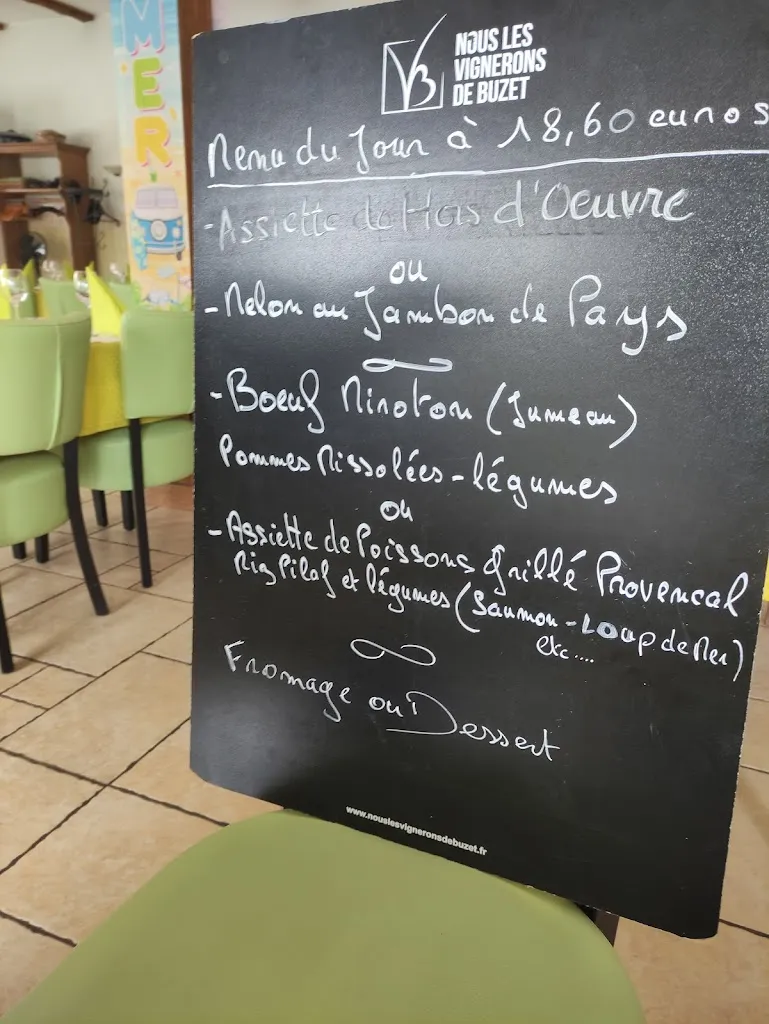 MER
NOUS LES
VIGNERONS
DE BUZET
Menu du Jour à 18,60 euros
- Assiette de Hors d'Oeuvre
ou
- Melon au Jambon de Pays
- Boeuf Miroton (Jumeau)
Pommes Rissolées - légumes
ou
- Assiette de Poissons Grillé Provencal
Riz Pilaf et légumes (Saumon - Loup de Mer)
etc....
Fromage ou Dessert
www.nouslesvigneronsdebuzet.fr